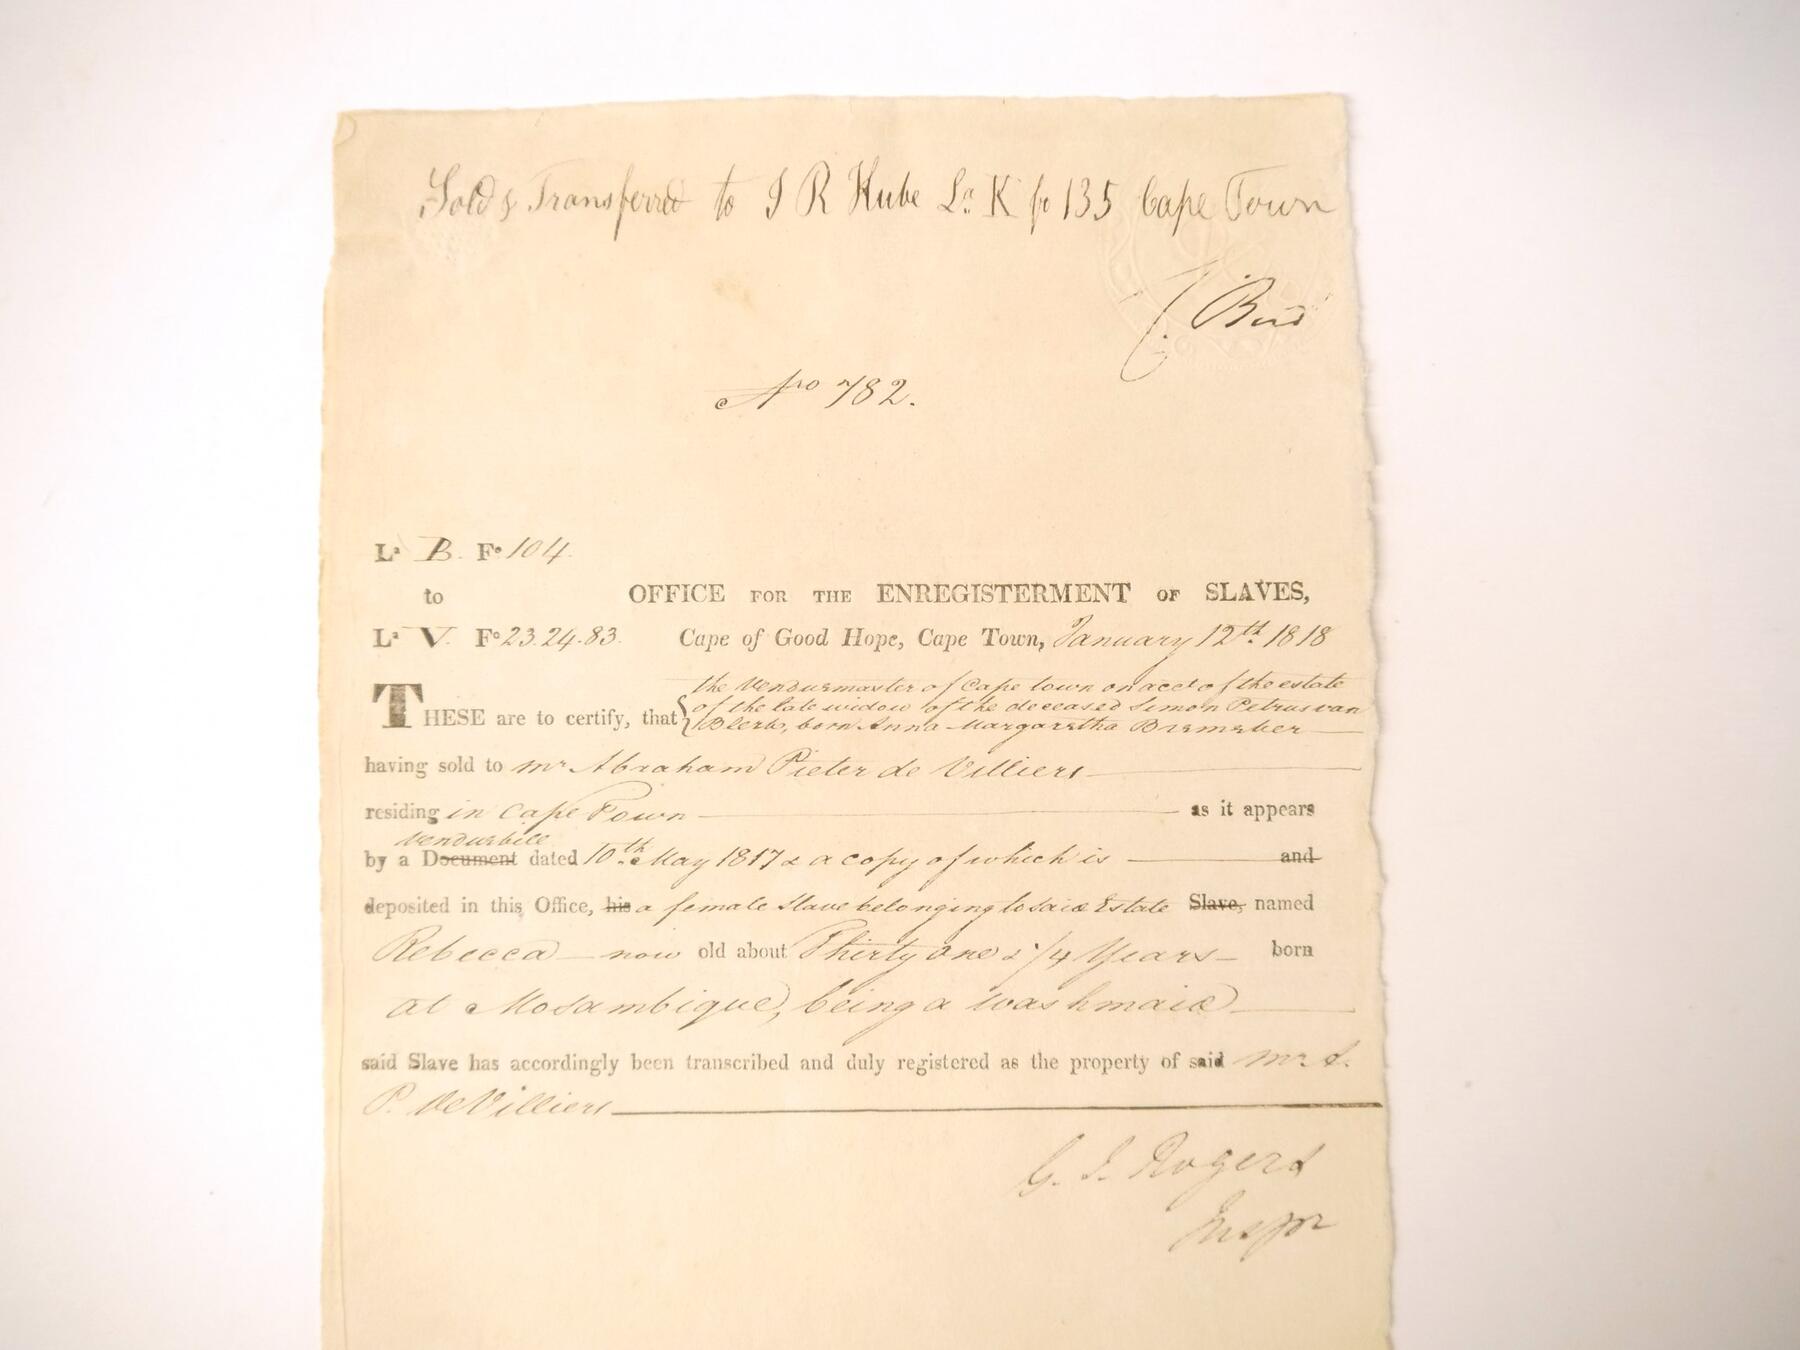 Sold & Transferred to I R Kube La. K fo 135 Cape Town
C. Bird
No 782.
La B. Fo 104.
to
OFFICE FOR THE ENREGISTERMENT OF SLAVES,
La V. Fo 23.24.83. Cape of Good Hope, Cape Town, January 12th. 1818
the Venduemaster of Cape town on acct of the estate
THESE are to certify, that { of the late widow of the deceased Simon Petrus van
Blerk, born Anna Margaretha
having sold to mr Abraham Pieter de Villiers
residing in Cape Town as it appears
Venduebill
by a Document dated 10th. May 1817 & a copy of which is and
deposited in this Office, his a female slave belonging to said Estate Slave, named
Rebecca now old about Thirty One & 1/4 Years born
at Mosambique, being a washmaid
said Slave has accordingly been transcribed and duly registered as the property of said mr. A.
P. de Villiers
G. J. Rogers
Inspr